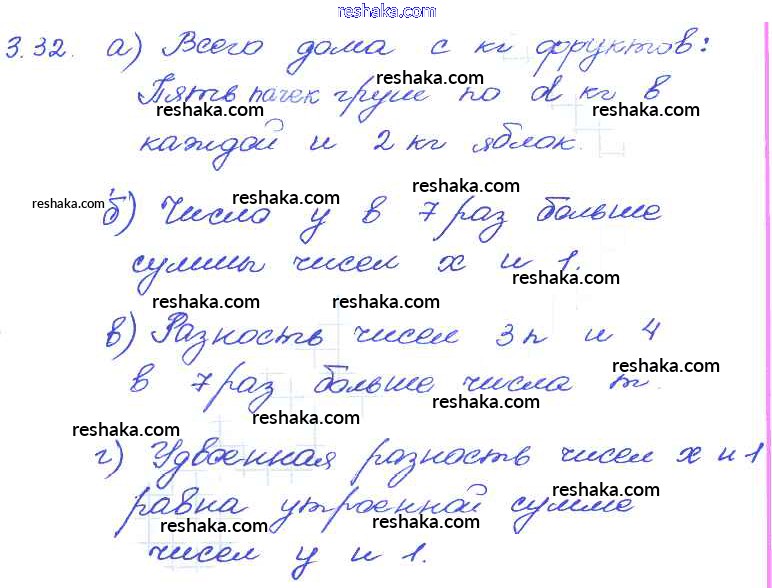 reshaka.com
3.32. а) Всего дома с кг фруктов:
reshaka.com
Пять пачек груш по d кг в
reshaka.com reshaka.com
каждой и 2 кг яблок.
reshaka.com
reshaka.com reshaka.com
б) Число y в 7 раз больше
суммы чисел x и 1.
reshaka.com
reshaka.com reshaka.com
в) Разность чисел 3n и 4
reshaka.com
в 7 раз больше числа m.
reshaka.com
reshaka.com
reshaka.com
г) Удвоенная разность чисел x и 1
reshaka.com
равна утроенной сумме
reshaka.com reshaka.com
чисел y и 1.
reshaka.com